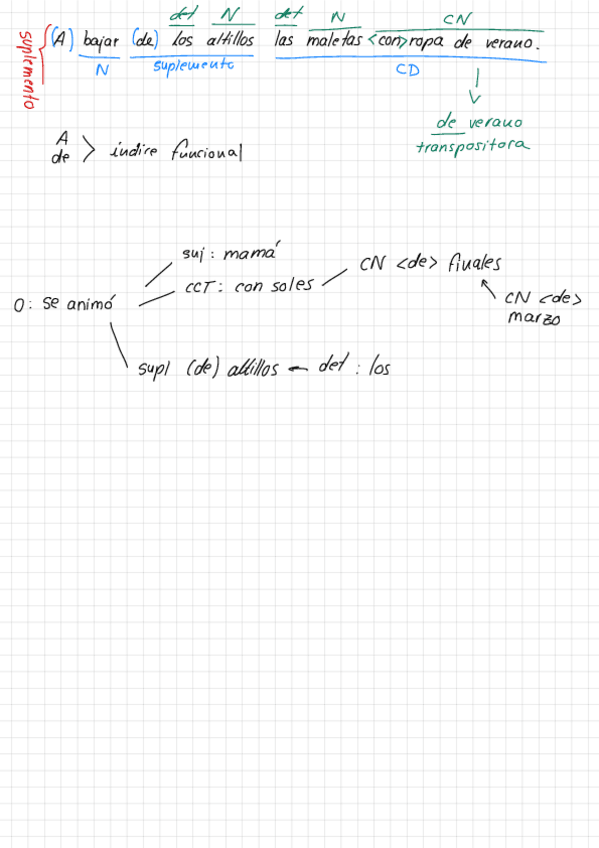 det N det N CN
suplemento (A) bajar (de) los altillos las maletas <con> ropa de verano.
N suplemento CD
de verano
transpositora
A
de > índice funcional
suj: mamá
CCT: con soles CN <de> finales
O: se animó CN <de>
marzo
supl (de) altillos - det: los